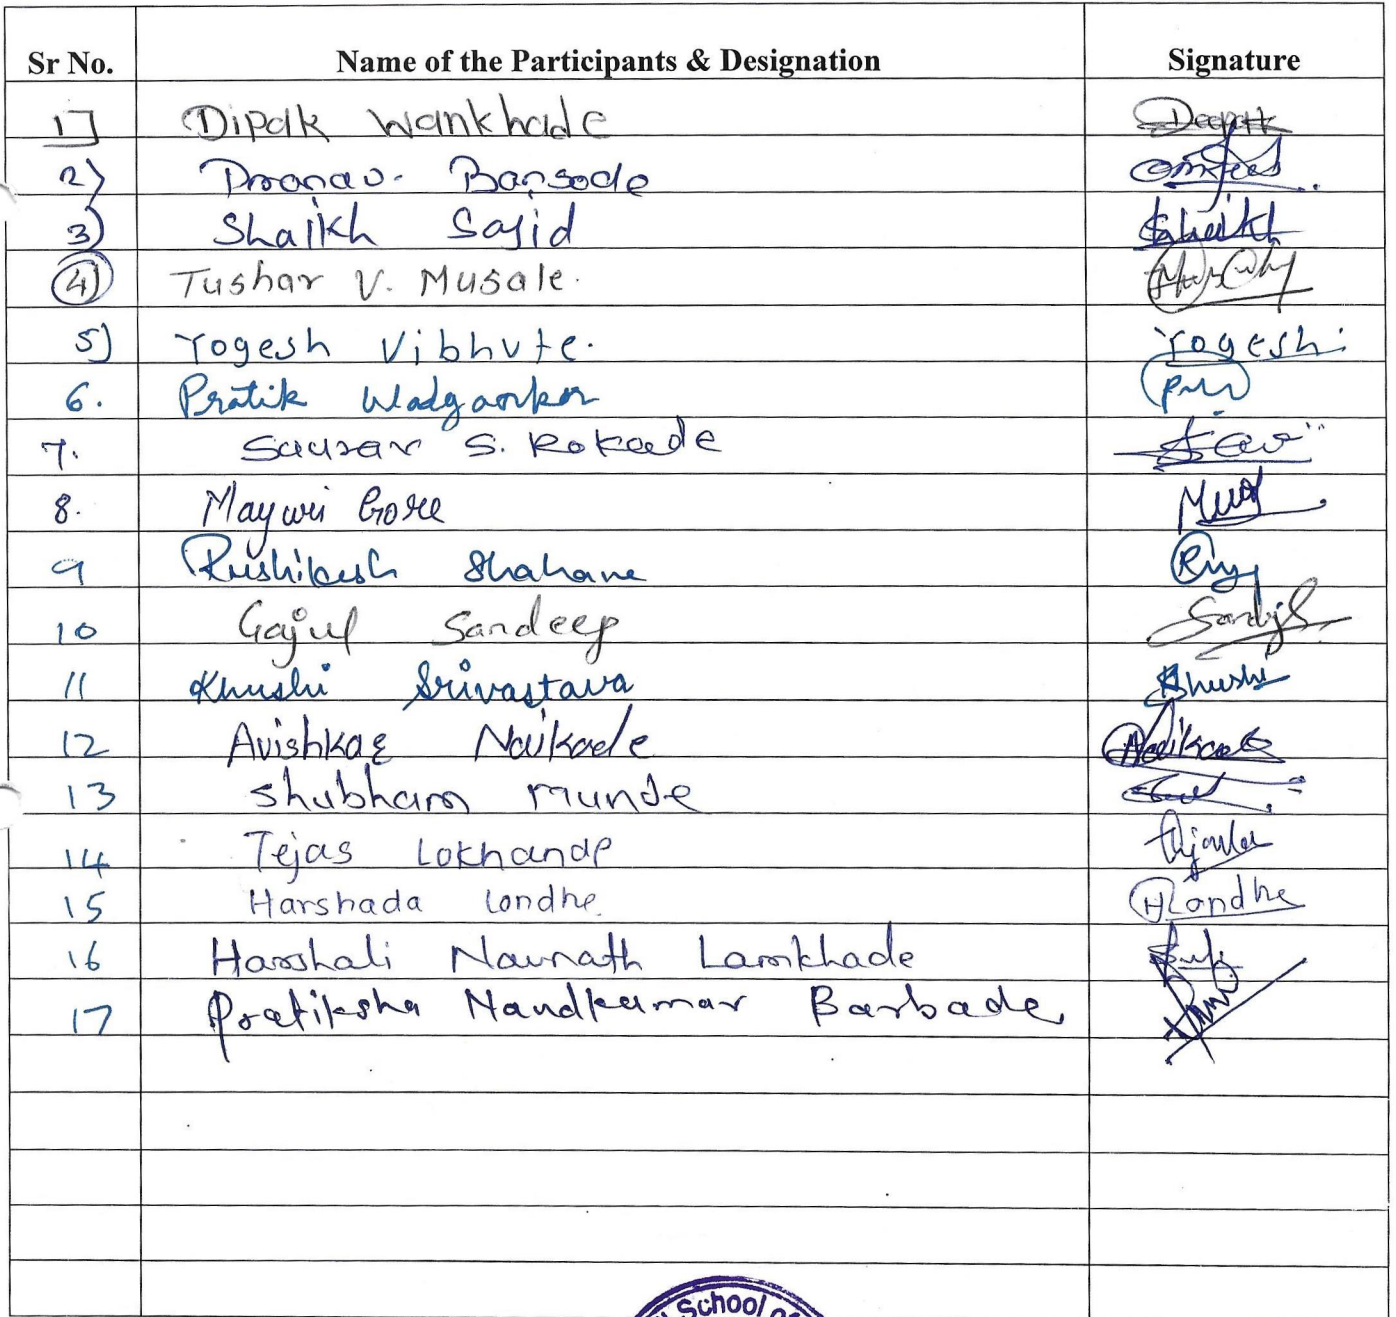 Sr No. Name of the Participants & Designation Signature
1] Dipak Wankhade Deepak
2) Pranav. Bansode
3) Shaikh Sajid Shaikh
4) Tushar V. Musale.
5) Yogesh Vibhute. Yogesh
6. Pratik Wadgaonkar
7. Saurav S. Rokade
8. Mayuri Gore
9 Rushikesh Shahane
10 Gajul Sandeep
11 Khushi Srivastava Khushi
12 Avishkar Naikade
13 Shubham Munde
14 Tejas Lokhande
15 Harshada Londhe. HLondhe
16 Harshali Navnath Lamkhade
17 Pratiksha Nandkumar Barbade
School of